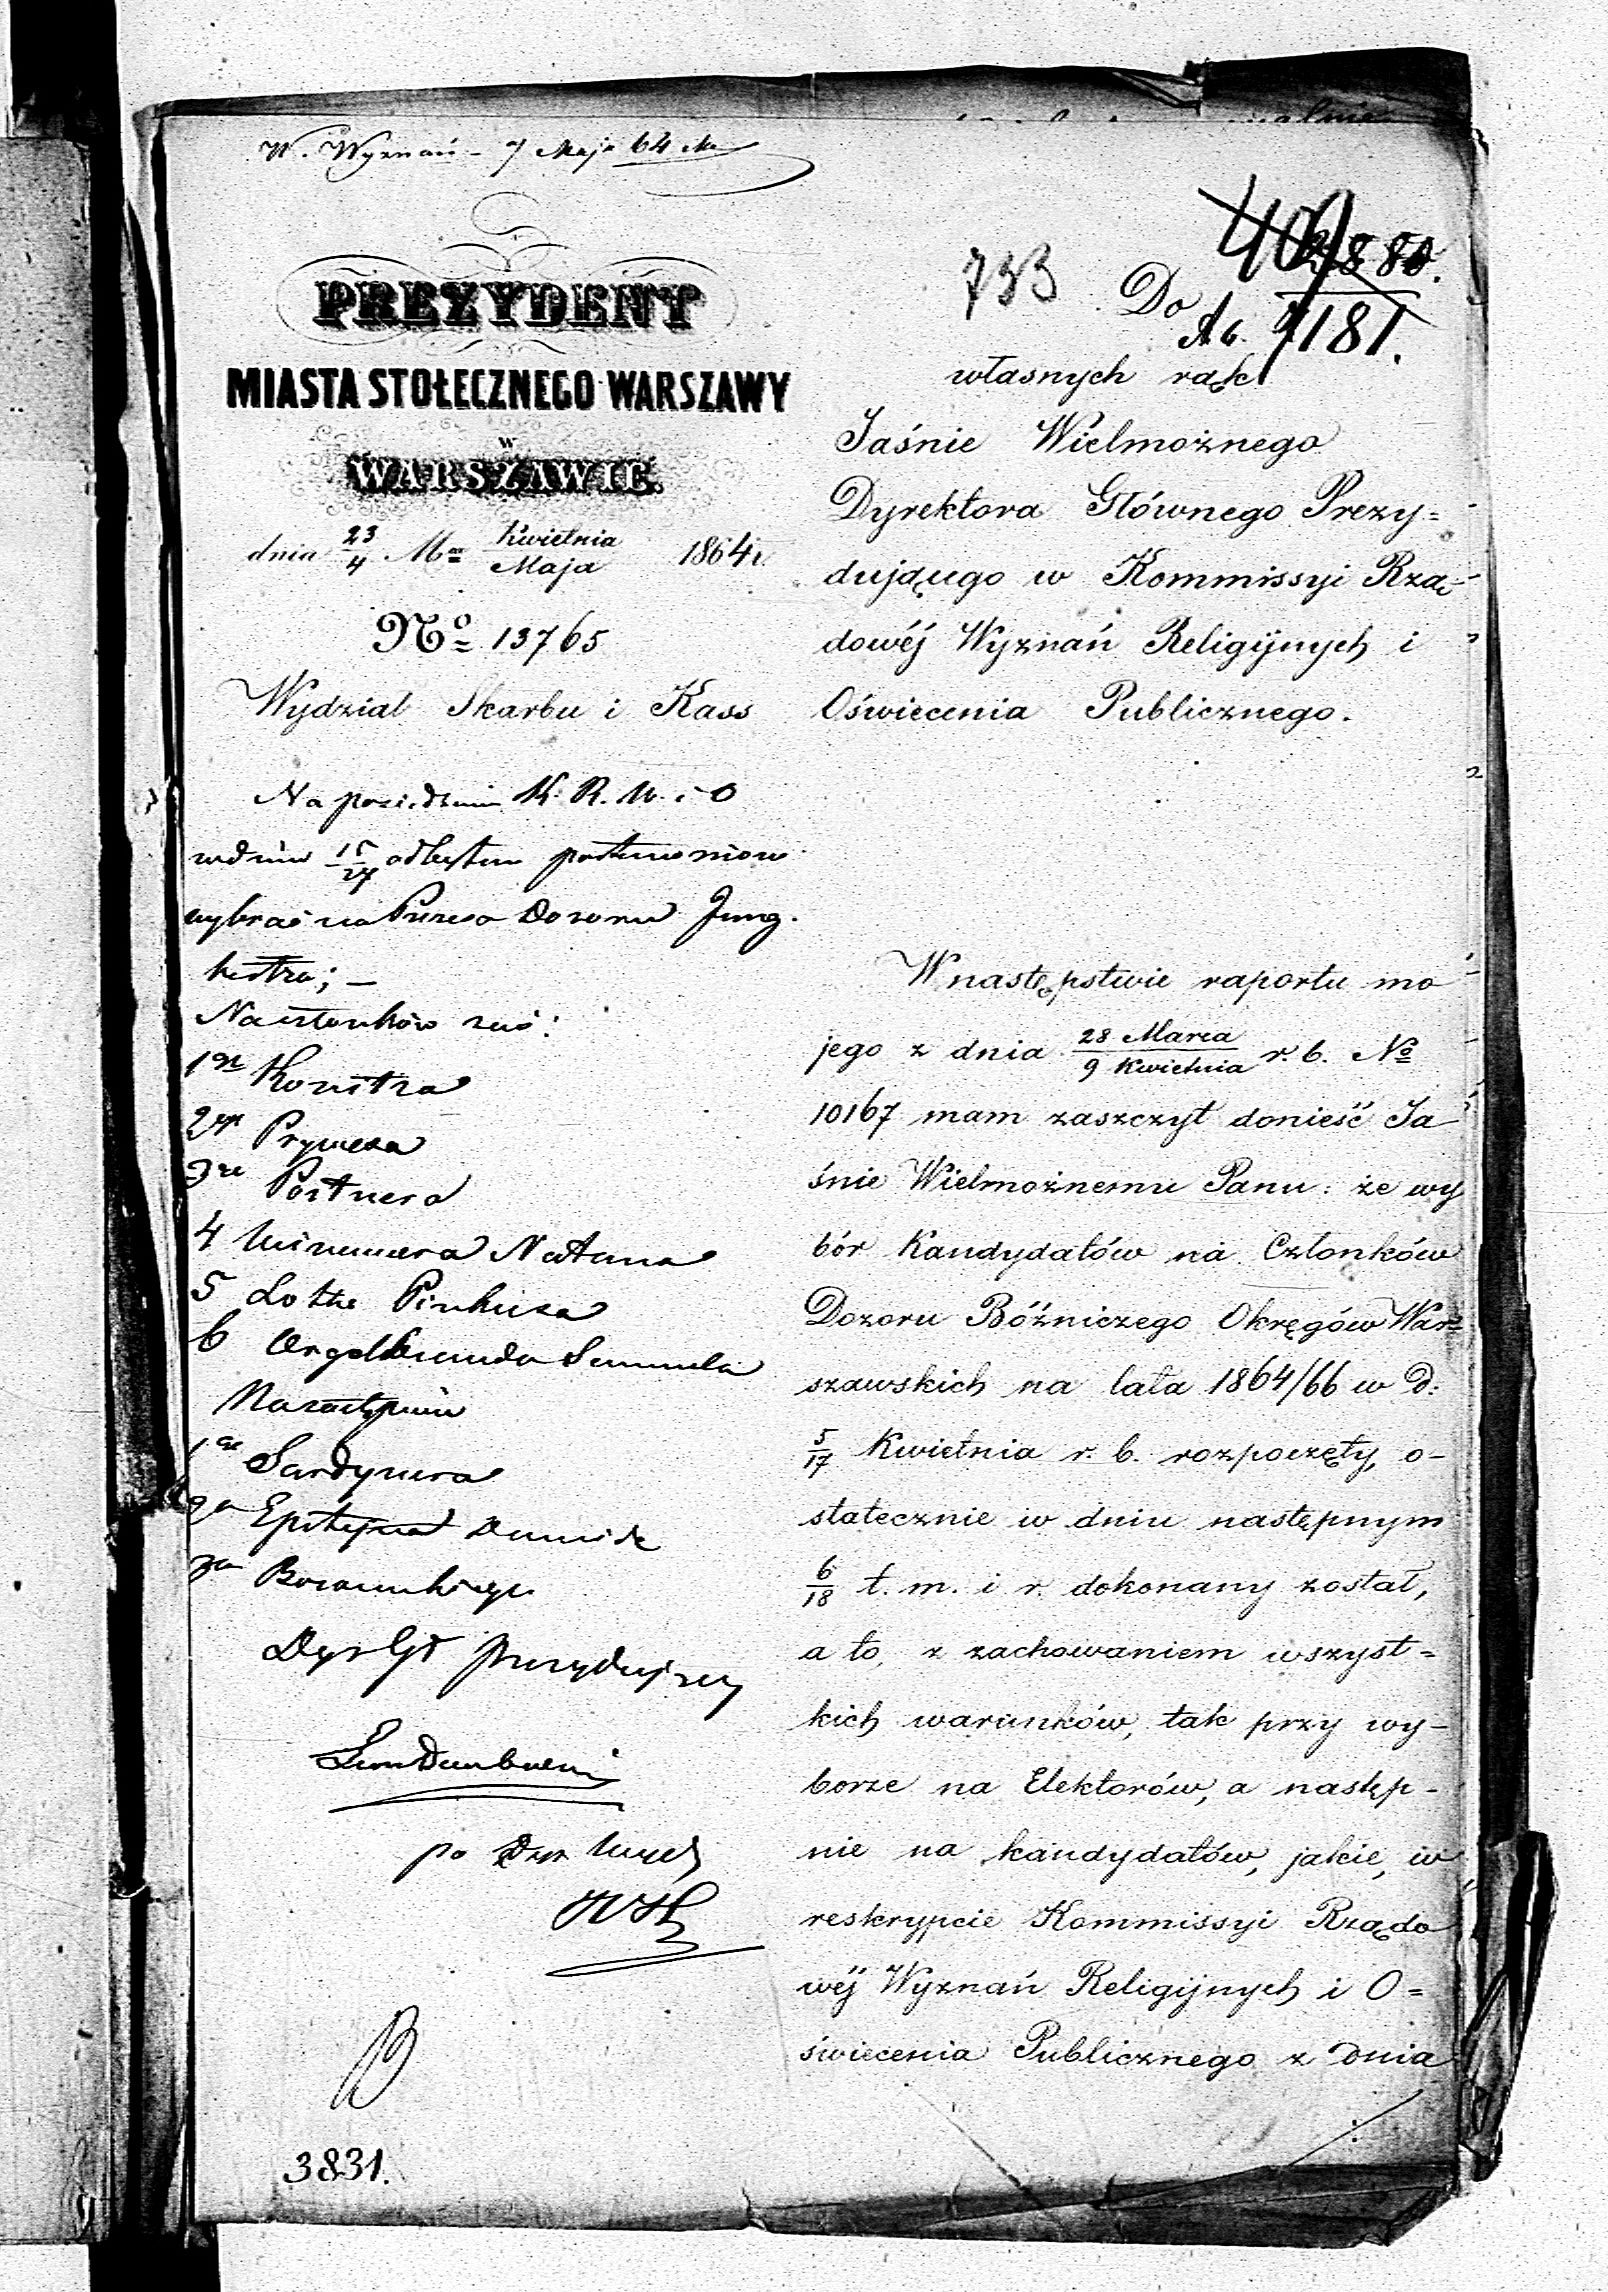 W. Wyznań - 7 Maja 64
PREZYDENT
MIASTA STOŁECZNEGO WARSZAWY
W
WARSZAWIE.
dnia 23/4 Mca Kwietnia/Maja 1864 r.
No 13765
Wydział Skarbu i Kass
Na posiedzeniu K. R. W. i O
w dniu 15/27 odbytem postanowiono
wybrać na Prezesa Dozoru Jung.
hertza; -
Na członków zaś:
1o
2o Prywesa
3o Portnera
4 Winawera Natana
5 Lothe Pinkusa
6 Orgelbranda Samuela
Na zastępców
1o
2o Epstejna
3o
Dyr Gł Prezydujący
po Dyr Wydz
3831.
733
409
2880.
7181.
Do
własnych rąk
Jaśnie Wielmożnego
Dyrektora Głównego Prezy=
dującego w Kommissyi Rzą-
dowéj Wyznań Religijnych i
Oświecenia Publicznego.
W następstwie raportu mo
jego z dnia 28 Marca/9 Kwietnia r. b. No
10167 mam zaszczyt donieść Ja
śnie Wielmożnemu Panu: że wy
bór Kandydatów na Członków
Dozoru Bóźniczego Okręgów War=
szawskich na lata 1864/66 w d:
5/17 Kwietnia r. b. rozpoczęty, o-
statecznie w dniu następnym
6/18 t. m. i r. dokonany został,
a to, z zachowaniem wszyst=
kich warunków, tak przy wy-
borze na Elektorów, a następ-
nie na kandydatów, jakie, w
reskrypcie Kommissyi Rządo
wéj Wyznań Religijnych i O=
świecenia Publicznego z dnia